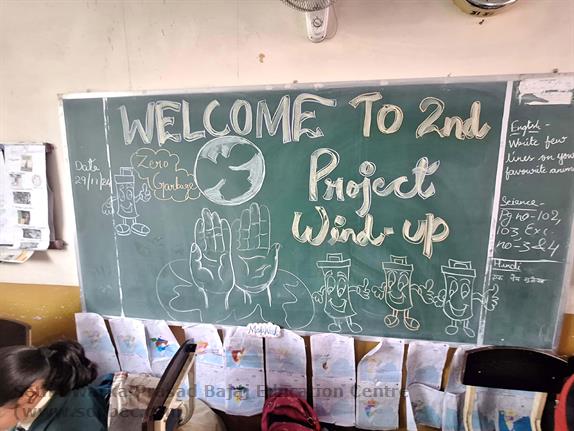 WELCOME TO 2nd
Project
Wind-up
Zero
Garbage
Date
29/11/24
English -
Write few
lines on you
favourite anim
Science -
Pg no - 102,
103 Exc -
no - 3 & 4
Hindi
Prasad Bajaj Education Centre